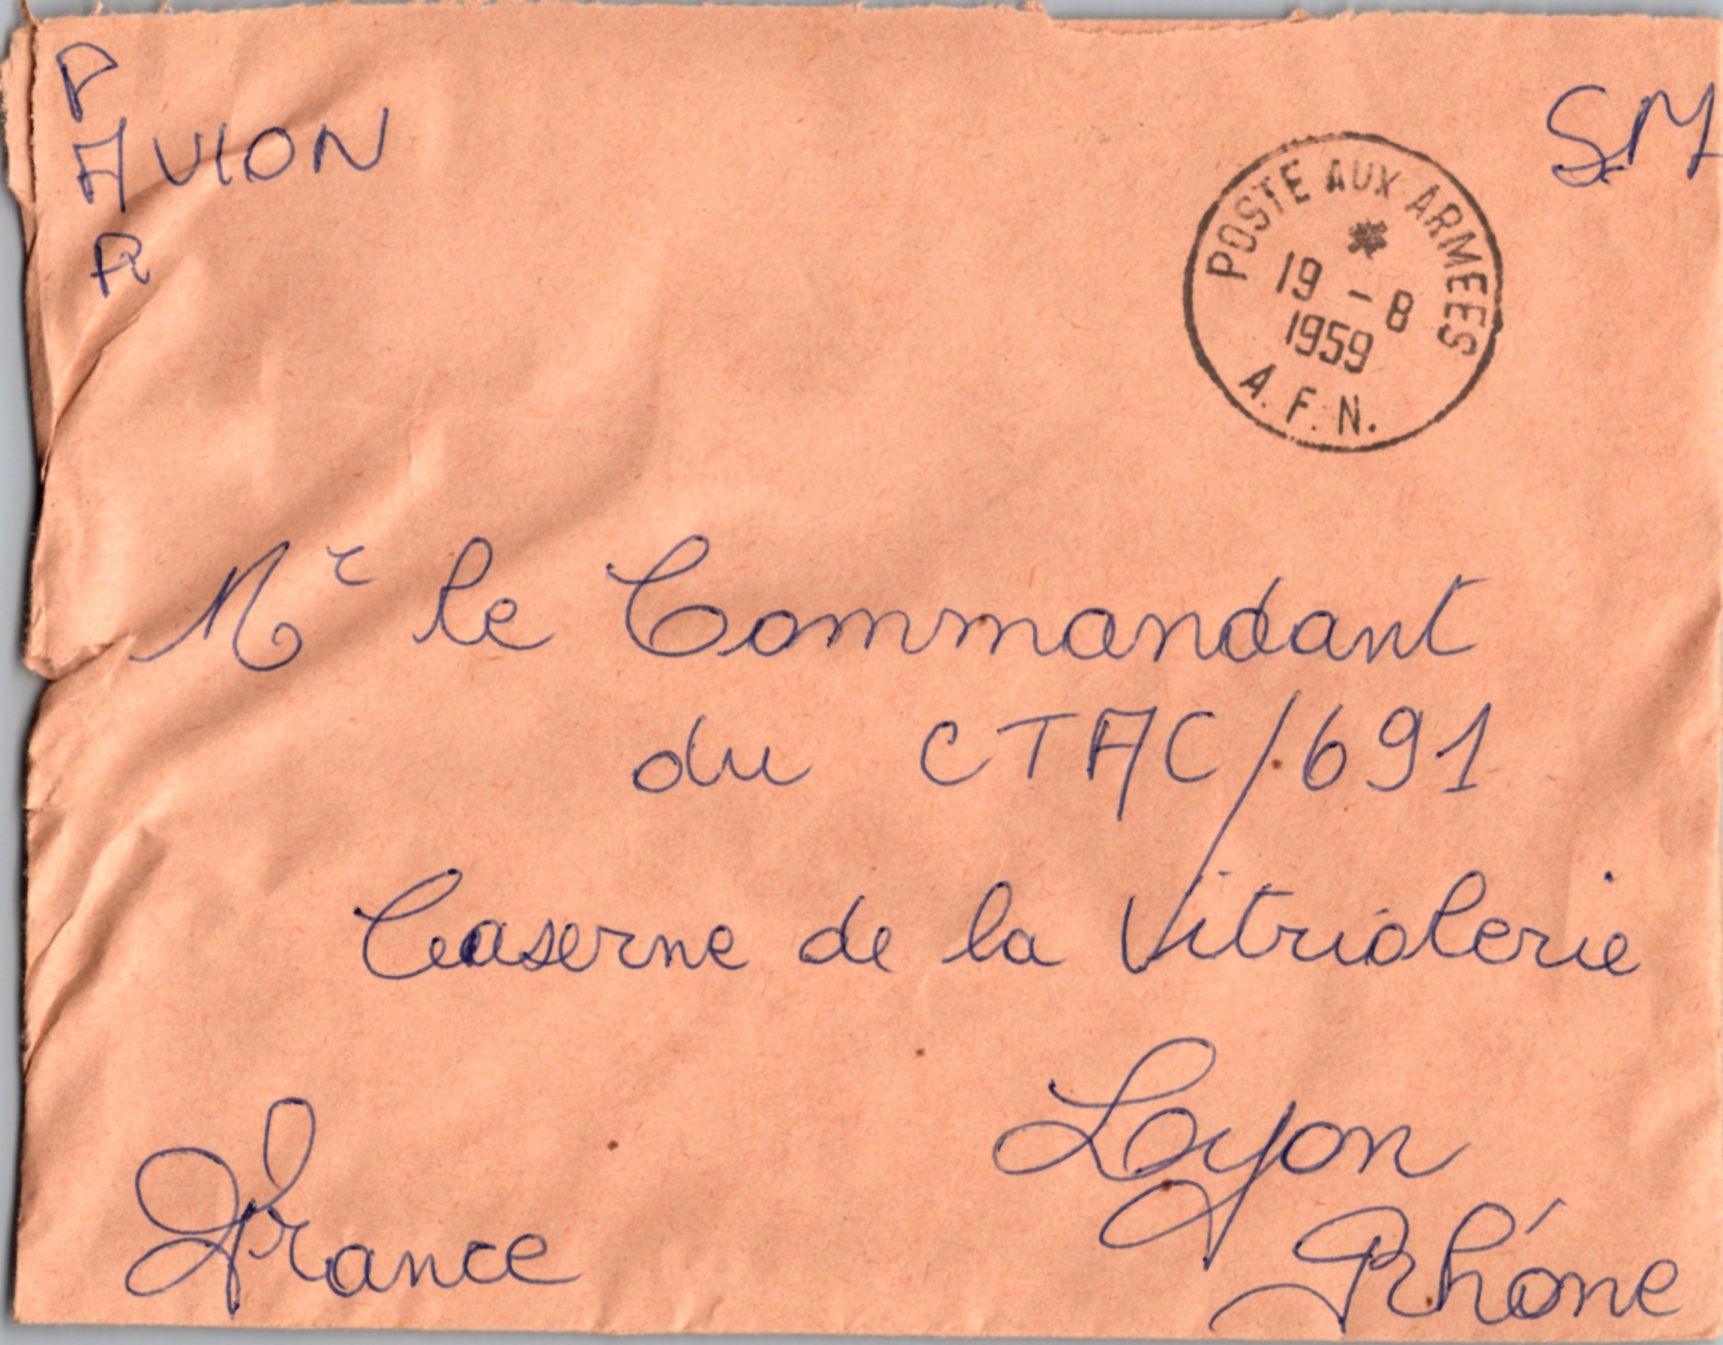 PAR
AVION
S.M
POSTE AUX ARMEES
19 - 8
1959
A.F.N.
Mr le Commandant
du CTAC/691
Caserne de la Vitriolerie
Lyon
Rhône
France